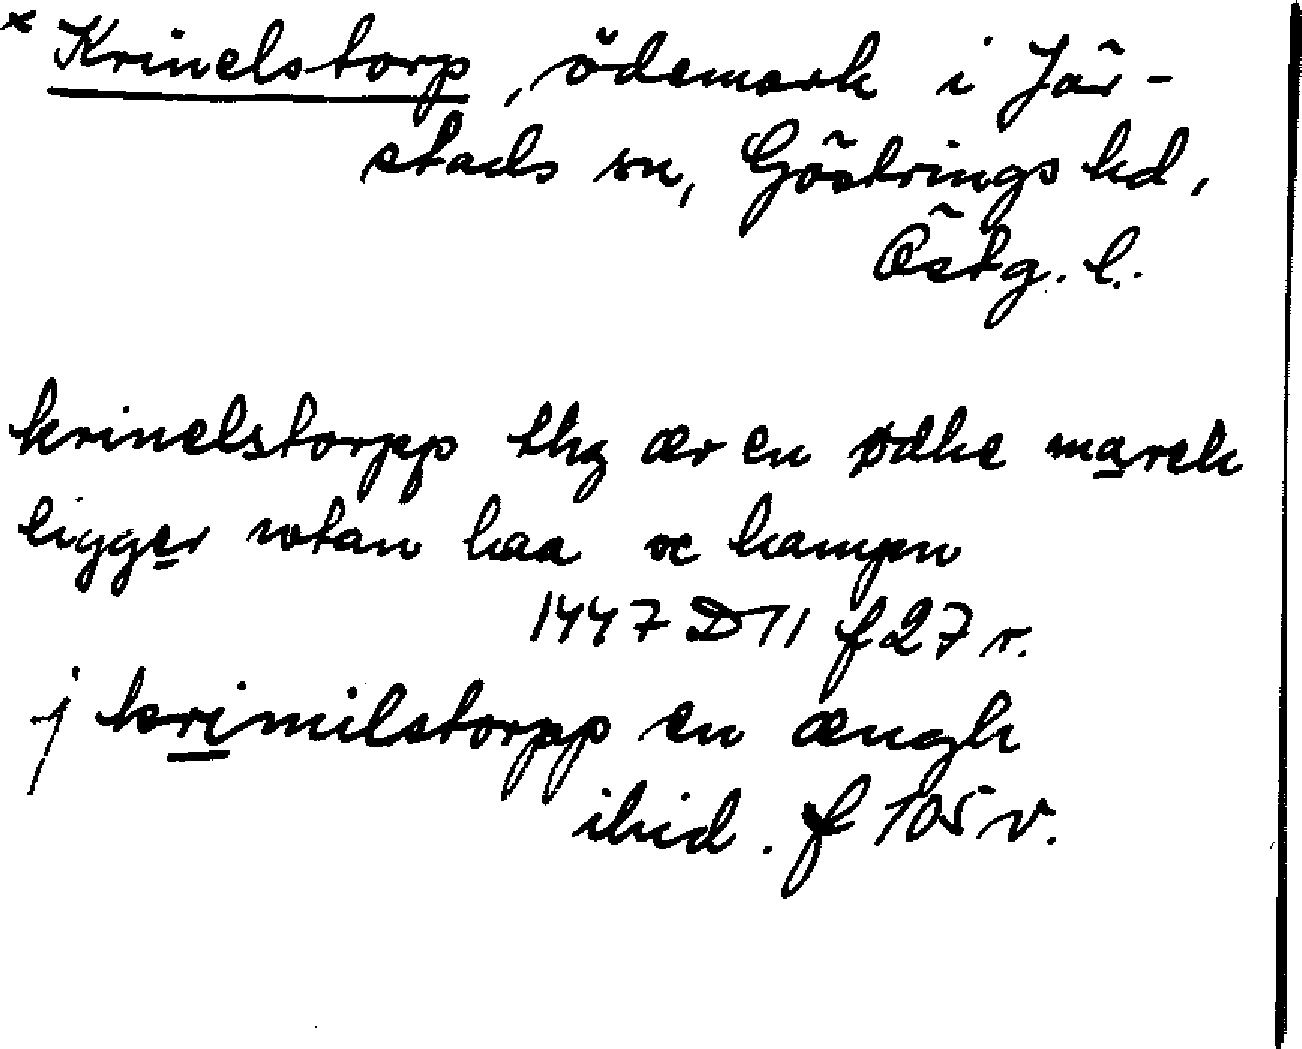 × Krinelstorp, ödemark i Jär-
stads sn, Göstrings hd,
Östg. l.
krinelstorpp thz ær en ødhe march
ligger wtan haa oc hampn
1447 D 11 f 27 r.
j krimilstorpp en ængh
ibid. f 105 v.